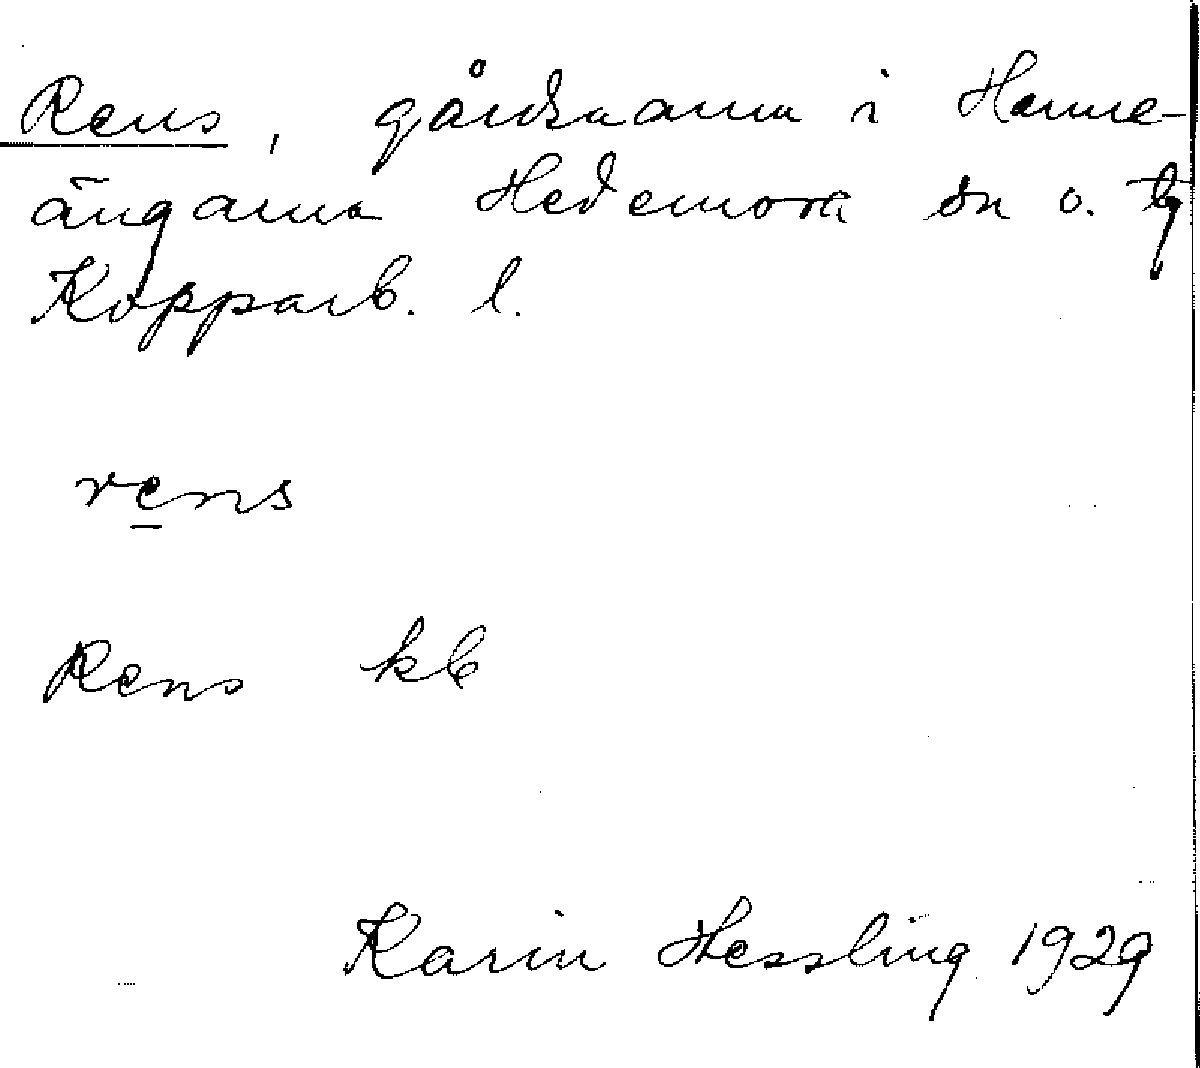 Rens, gårdsnamn i Hamre-
ängarna Hedemora sn o. tg
Kopparb. l.
rens
Rens kb
Karin Hessling 1929